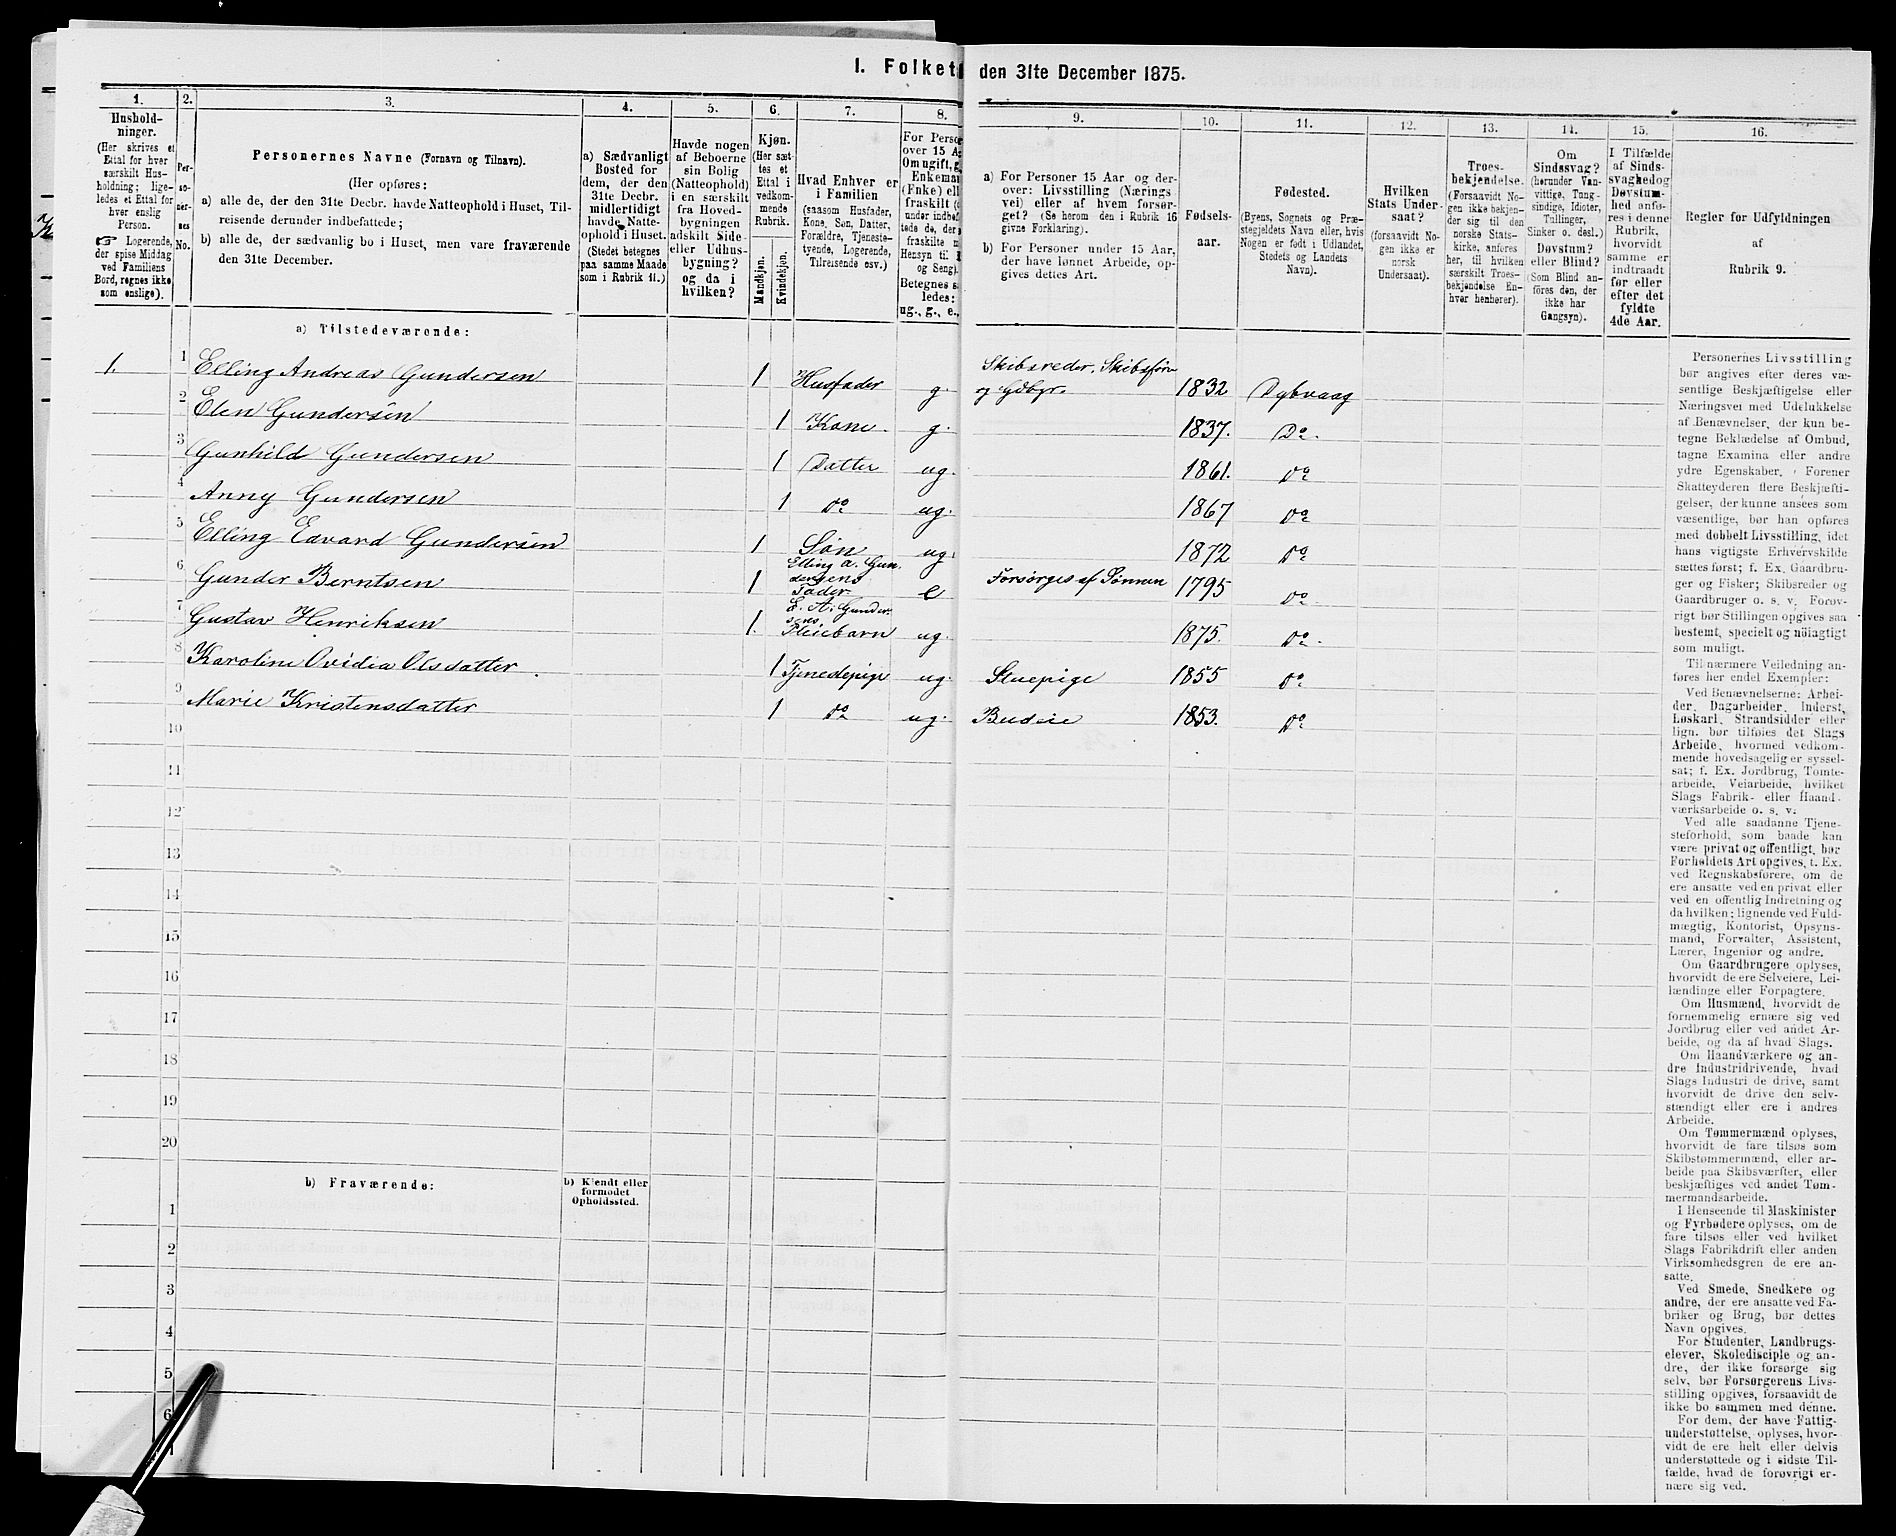 I. Folket den 31te December 1875.
1. 2. 3. 4. 5. 6. 7. 8. 9. 10. 11. 12. 13. 14. 15. 16.
Hushold-
ninger.
(Her skrives et
Ettal for hver
særskilt Hus-
holdning; lige-
ledes et Ettal for
hver enslig
Person.
☞ Logerende,
der spise Middag
ved Familiens
Bord, regnes ikke
som enslige).
Per-
so-
ner-
nes
No.
Personernes Navne (Fornavn og Tilnavn).
(Her opføres:
a) alle de, der den 31te Decbr. havde Natteophold i Huset, Til-
reisende derunder indbefattede;
b) alle de, der sædvanlig bo i Huset, men vare fraværende
den 31te December.
a) Sædvanligt
Bosted for
dem, der den
31te Decbr.
midlertidigt
havde Natte-
ophold i Huset.
(Stedet betegnes
paa samme Maade
som i Rubrik 11.)
Havde nogen
af Beboerne
sin Bolig
(Natteophold)
i en særskilt
fra Hoved-
bygningen
adskilt Side-
eller Udhus-
bygning?
og da i
hvilken?
Kjøn.
(Her sæt-
tes et
Ettal i
vedkom-
mende
Rubrik.
Mandkjøn.
Kvindekjøn.
Hvad Enhver er
i Familien
(saasom Husfader,
Kone, Søn, Datter,
Forældre, Tjeneste-
tyende, Logerende,
Tilreisende osv.)
For Perso
over 15 A
Om ugift, g
Enkema
(Enke) ell
fraskilt (
under indbe
tede de, der
fraskilte
Hensyn til
og Seng).
Betegnes s
ledes:
ug., g., e.,
a) For Personer 15 Aar og der-
over: Livsstilling (Nærings
vei) eller af hvem forsør-
get? (Se herom den i Rubrik 16
givne Forklaring).
b) For Personer under 15 Aar,
der have lønnet Arbeide, op-
gives dettes Art.
Fødsels-
aar.
Fødested.
(Byens, Sognets og Præ-
stegjeldets Navn eller, hvis
Nogen er født i Udlandet,
Stedets og Landets
Navn).
Hvilken
Stats Under-
saat?
(forsaavidt No-
gen ikke er
norsk
Undersaat).
Troes-
bekjendelse.
(Forsaavidt No-
gen ikke bekjen-
der sig til den
norske Stats-
kirke, anføres
her, til hvilken
særskilt Troes-
bekjendelse En-
hver henhører).
Om
Sindssvag?
(herunder Van-
vittige, Tung-
sindige, Idioter,
Tullinger,
Sinker o. desl.)
Døvstum?
eller Blind?
(Som Blind an-
føres den, der
ikke har
Gangsyn).
I Tilfælde
af Sinds-
svaghed og
Døvstum-
hed anfø-
res i denne
Rubrik,
hvorvidt
samme er
indtraadt
før eller
efter det
fyldte
4de Aar.
Regler for Udfyldningen
af
Rubrik 9.
a) Tilstedeværende:
1. 1 Elling Andreas Gundersen 1 Husfader g. Skibsreder, Skibsfører og Gdbgr. 1832 Dybvaag
2 Elen Gundersen 1 Kone. g. 1837. Do.
3 Gunhild Gundersen 1 Datter ug. 1861. do
4 Anny Gundersen 1 do ug. 1867 do
5 Elling Edvard Gundersen 1 Søn ug. 1872 do
6 Gunder Berntsen 1 Elling A. Gundersens Fader e Forsørges af Sønnen 1795 do
7 Gustav Henriksen 1. E. A. Gundersens Pleiebarn ug. 1875. do.
8 Karoline Ovidia Olsdatter. 1 Tjenestepige ug. Stuepige 1855 do
9 Marie Kristensdatter 1 do ug. Budeie 1853. do
10
11
12
13
14
15
16
17
18
19
20
b) Fraværende: b) Kjendt eller
formodet
Opholdssted.
1
2
3
4
5
6
Personernes Livsstilling
bør angives efter deres væ-
sentlige Beskjæftigelse eller
Næringsvei med Udelukkelse
af Benævnelser, der kun be-
tegne Beklædelse af Ombud,
tagne Examina eller andre
ydre Egenskaber. Forener
Skatteyderen flere Beskjæfti-
gelser, der kunne ansées som
væsentlige, bør han opføres
med dobbelt Livsstilling, idet
hans vigtigste Erhvervskilde
sættes først; f. Ex. Gaardbru-
ger og Fisker; Skibsreder og
Gaardbruger o. s. v. Forøv-
rigt bør Stillingen opgives saa
bestemt, specielt og nöiagtigt
som muligt.
Til nærmere Veiledning an-
føres her endel Exempler:
Ved Benævnelserne: Arbei-
der, Dagarbeider, Inderst,
Løskarl, Strandsidder eller
lign. bør tilføies det Slags
Arbeide, hvormed vedkom-
mende hovedsagelig er syssel-
sat; f. Ex. Jordbrug, Tomte-
arbeide, Veiarbeide, hvilket
Slags Fabrik- eller Haand-
værksarbeide o. s. v.
Ved alle saadanne Tjene-
steforhold, som baade kan
være privat og offentligt, bør
Forholdets Art opgives, t. Ex.
ved Regnskabsførere, om de
ere ansatte ved en privat eller
ved en offentlig Indretning og
da hvilken; lignende ved Fuld-
mægtig, Kontorist, Opsyns-
mand, Forvalter, Assistent,
Lærer, Ingeniør og andre.
Om Gaardbrugere oplyses,
hvorvidt de ere Selveiere, Lei-
lændinge eller Forpagtere.
Om Husmænd, hvorvidt de
fornemmelig ernære sig ved
Jordbrug eller ved andet Ar-
beide, og da af hvad Slags.
Om Haandværkere og an-
dre Industridrivende, hvad
Slags Industri de drive, samt
hvorvidt de drive den selv-
stændigt eller ere i andres
Arbeide.
Om Tømmermænd oplyses,
hvorvidt de fare tilsøs som
Skibstømmermænd, eller ar-
beide paa Skibsværfter, eller
beskjæftiges ved andet Tøm-
mermandsarbeide.
I Henseende til Maskinister
og Fyrbødere oplyses, om de
fare tilsøs eller ved hvilket
Slags Fabrikdrift eller anden
Virksomhedsgren de ere an-
satte.
Ved Smede, Snedkere og
andre, der ere ansatte ved Fa-
briker og Brug, bør dettes
Navn opgives.
For Studenter, Landbrugs-
elever, Skoledisciple og an-
dre, der ikke forsørge sig
selv, bør Forsørgerens Livs-
stilling opgives, forsaavidt de
ikke bo sammen med denne.
For dem, der have Fattig-
understøttelse, oplyses, hvor-
vidt de ere helt eller delvis
understøttede og i sidste Til-
fælde, hvad de forøvrigt er-
nære sig ved.